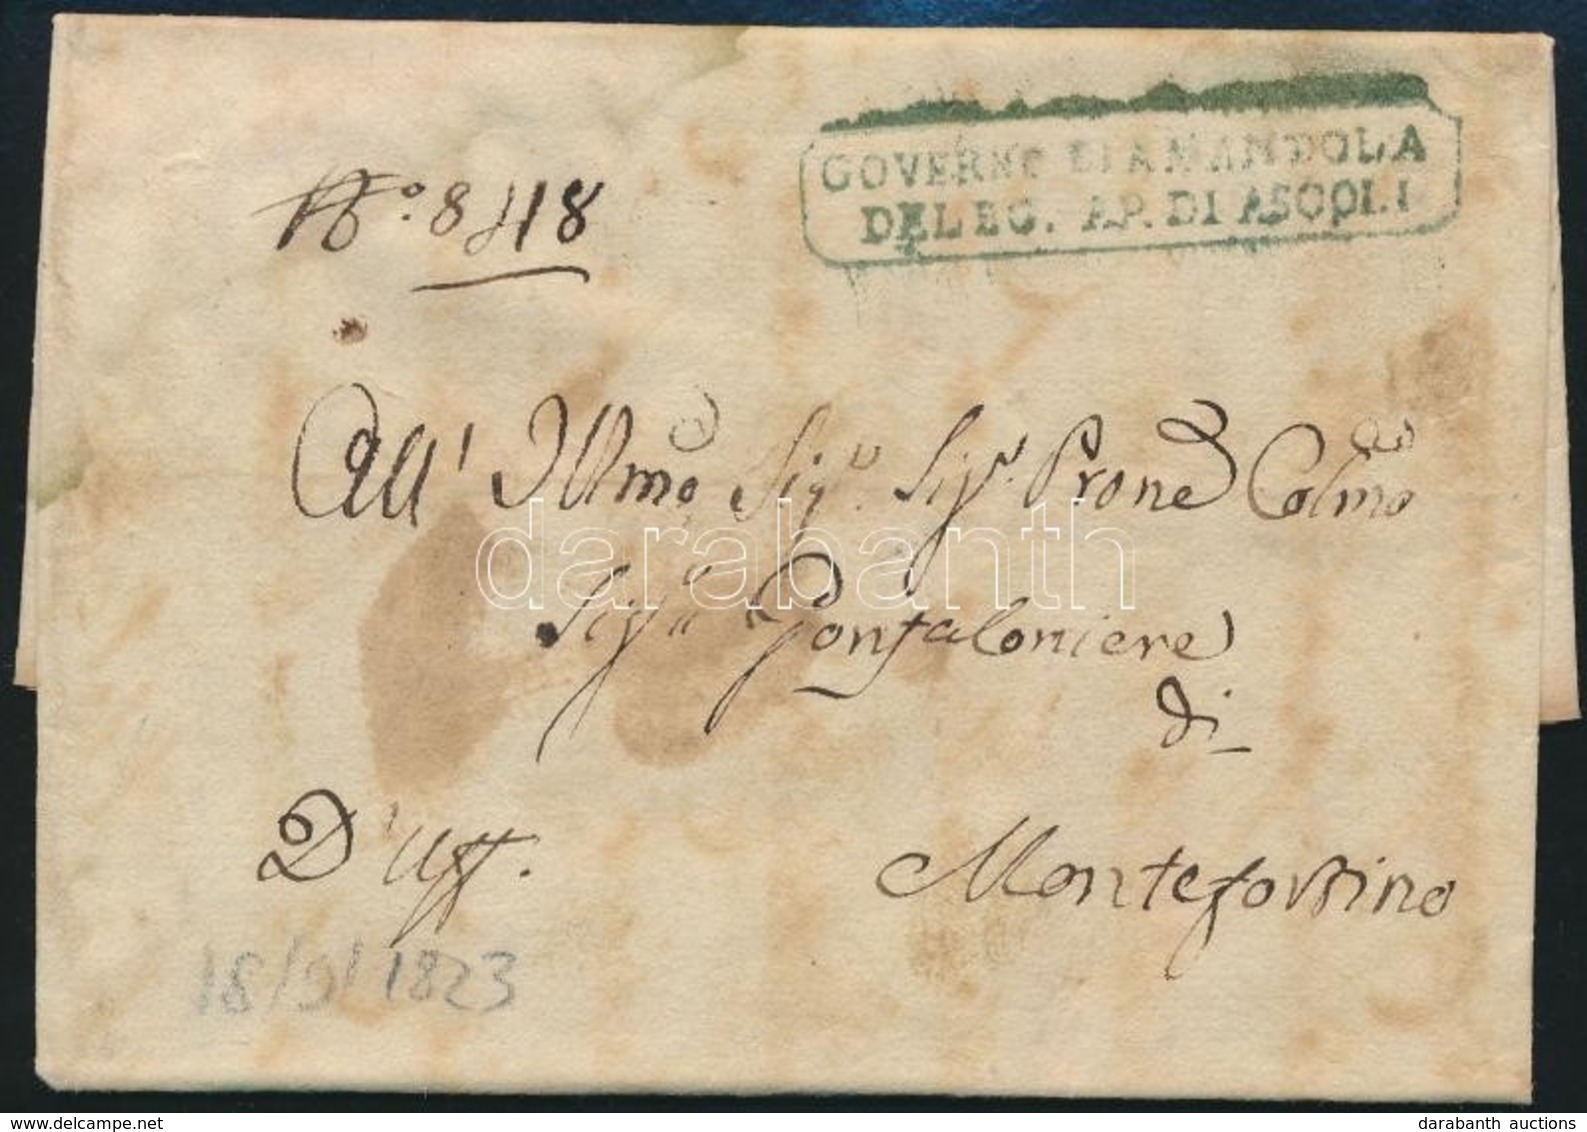 GOVERNO DI AMANDOLA
DELEG. AP. DI ASCOLI
N.º 8418
All' Illmo Sigr. Sigr. Prone Colmo
Sigr Gonfaloniere
di
D'Uff. Montefortino
18/9/1823
darabanth
www.delcampe.net
darabanth auctions